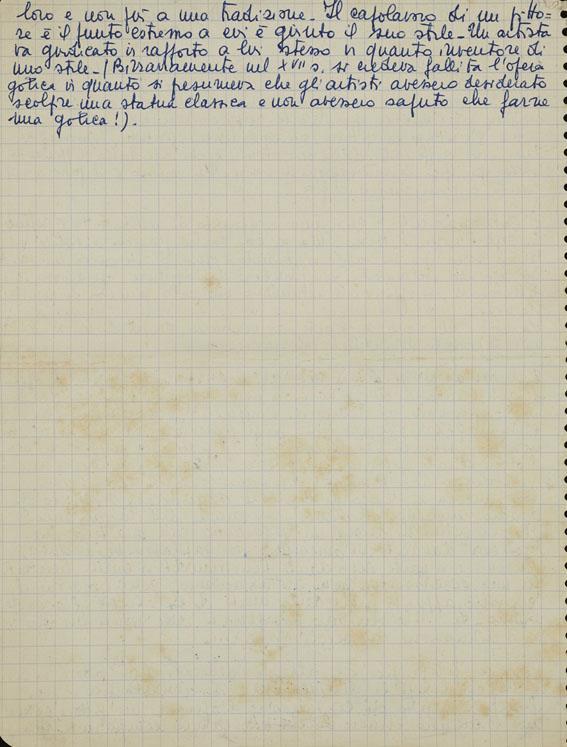 loro e non più a una tradizione. Il capolavoro di un pitto=
re è il punto estremo a cui è giunto il suo stile - Un artista
va giudicato in rapporto a lui stesso in quanto inventore di
uno stile - (Bizzarramente nel XVII s. si credeva fallita l'opera
gotica in quanto si presumeva che gli artisti avessero desiderato
scolpire una statua classica e non avessero saputo che farne
una gotica!).